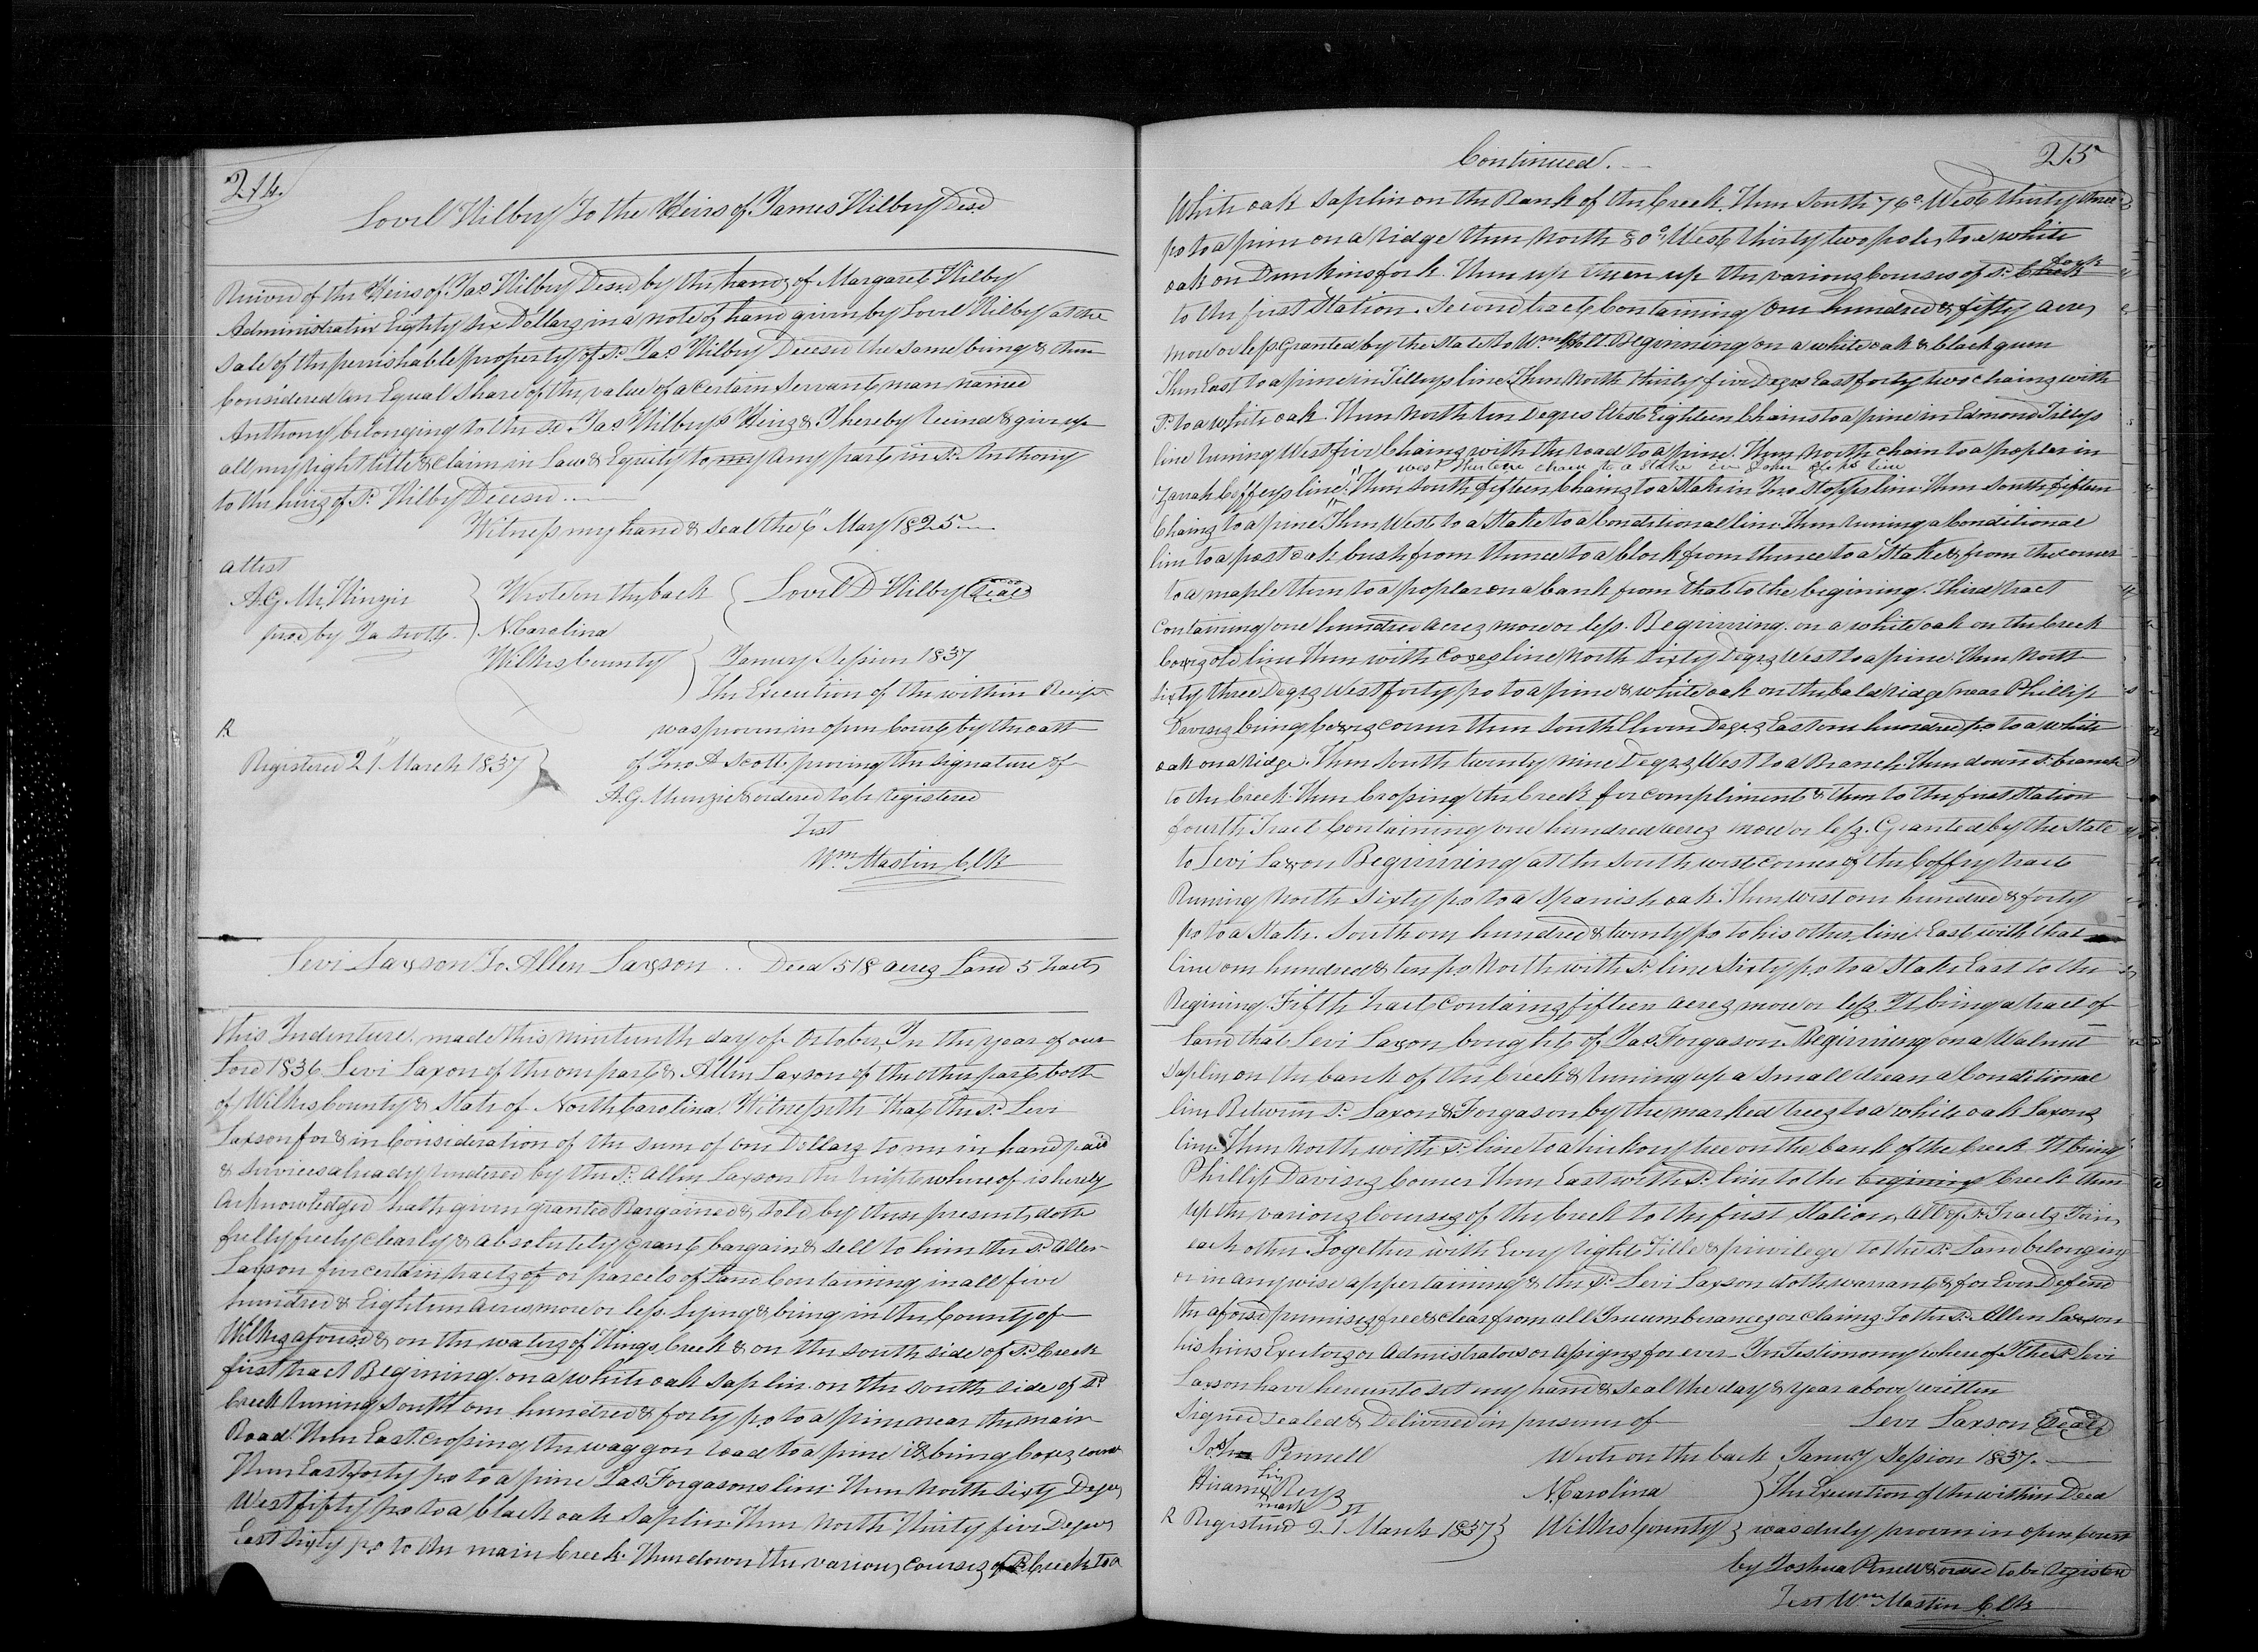 214.
Lovel Kilbury To the Heirs of James Kilbury Desd
Reicvd of the Heirs of Jas Kilbury Desd by the hands of Margaret Kilby
Administratix Eighty six Dollars in a note of hand given by Lovel Kilby at the
sale of the perishable property of sd Jas Kilbury Decesd the same being & then
Considered an Equal Share of the value of a certain Servant man named
Anthony belonging to the sd Jas Kilburys Heirs & I hereby & give up
all my right title & claim in Law & Equity to my any part in sd Anthony
to the heirs of sd Kilby Decesd
Witness my hand & seal the 6" May 1825
attest
A.G. McKinzie
prod by Ja Scott
Wrote on the back
N. Carolina
Wilkes County
Lovel D Kilby Seal
January Session 1837
The Execution of the within Reciept
was proven in open Court by the oath
of Jno A Scott proving the signature of
A.G. Munzie & ordered to be registered
Test
Wm Mastin Clk
R
Registered 21" March 1837
Levi Laxson To Allen Laxson .. Deed 518 acres Land 5 Tracts
This Indenture made this nineteenth day of October In the year of our
Lord 1836 Levi Laxon of the one part & Allen Laxson of the other part both
of Wilkes County & State of North Carolina. Witnesseth that the sd Levi
Laxson for & in Consideration of the sum of one Dollars to me in hand paid
& Services already rendered by the sd Allen Laxson the recipt whereof is hereby
acknowledged hath given granted Bargained & sold by these presents doth
fully freely clearly & absolutely grant bargain & sell to him the sd Allen
Laxson five certain tracts of or parcels of Land Containing in all five
hundred & Eighteen acres more or less Lying & being in the County of
Wilkes aforesd & on the waters of Kings Creek & on the south side of sd Creek
first tract Begining on a white oak saplin on the south side of sd
Creek runing South one hundred & forty po to a pine near the main
Road. Then East crossing the waggon road to a pine it being Coxes corner
Then East forty po to a pine Jas Forgasons line Then North sixty Degres
West fifty po to a black oak saplin Then North Thirty five Degres
East sixty po to the main Creek. Then down the various courses of sd Creek to a
Continued.
215
White oak saplin on the Bank of the Creek. Then South 76° West thirty three
po to a pine on a ridge then North 80° West thirty two poles to a white
oak on Dunkins fork. Then up then up the various Courses of sd Creek fork
to the first Station. Second tract Containing One hundred & fifty acres
more or less Granted by the State to Wm Holt Beginning on a white oak & black gum
Then East to a pine in Tilleys line Then North thirty five Degres East forty two chains with
sd to a white oak. Then North ten Degres West Eighteen Chains to a pine in Edmond Tilleys
line runing West five Chains with the road to a pine. Then North chain to a poplar in
west thirteen chain to a stake in John Stops line
Coffeys line. Then South fifteen Chains to a Stake in Jno Stopps line Then South fifteen
Chains to a pine. Then West to a Stake to a Conditional line. Then runing a Conditional
line to a post oak bush from thence to a block from thence to a Stake & from the corner
to a maple then to a poplar on a bank from that to the begining. Third tract
Containing one hundred acres more or less. Beginning on a white oak on the Creek
Coxes old line Then with Coxes line North Sixty Degrs West to a pine Then North
Sixty three Degrs West forty po to a pine & white oak on the bald ridge near Phillip
Davises being Coxes corner then South Eleven Degrs East one hundred po to a white
oak on a ridge. Then South twenty nine Degrs West to a Branch. Then down sd branch
to the Creek. Then Crossing the Creek for compliment & then to the first Station
fourth Tract Containing one hundred acres more or less. Granted by the State
to Levi Laxon Beginning at the South west corner of the Coffey tract
Runing North Sixty po to a Spanish oak. Then west one hundred & forty
po to a Stake. South one hundred & twenty po to his other line East with that
line one hundred & ten po North with sd line Sixty po to a Stake East to the
Begining. Fifth tract Contains fifteen acres more or less It being a tract of
land that Levi Laxon bought of Jas Forgason Beginning on a Walnut
Saplin on the bank of the Creek & Runing up a small drean a Conditional
line Between sd Laxon & Forgason by the marked trees to a white oak Laxons
line. Then North with sd line to a hickory tree on the bank of the Creek It being
Phillip Davises Corner Then East with sd line to the begining Creek then
up the various Courses of the Creek to the first Station all of sd Tracts Join
each other. Together with Every right Title & privilege to the sd Land belonging
or in any wise appertaining & the sd Levi Laxson doth warrant & for Ever Defend
the aforsd premises free & clear from all Incumberances or claims To the sd Allen Laxson
his heirs Executors or Admistrators or assigns for ever. In Testimony whereof I the sd Levi
Laxson have hereunto set my hand & seal the day & year above written
Signed sealed & Delivered in presence of
Levi Laxson Seal
Josh Pennell
Hiram his x mark
Wrote on the back January Session 1837.
N. Carolina
Wilkes County
The Execution of the within Deed
was duly proven in open Court
by Joshua Pennell & ordered to be registered
Test Wm Mastin Clk
R Registered 21st March 1837